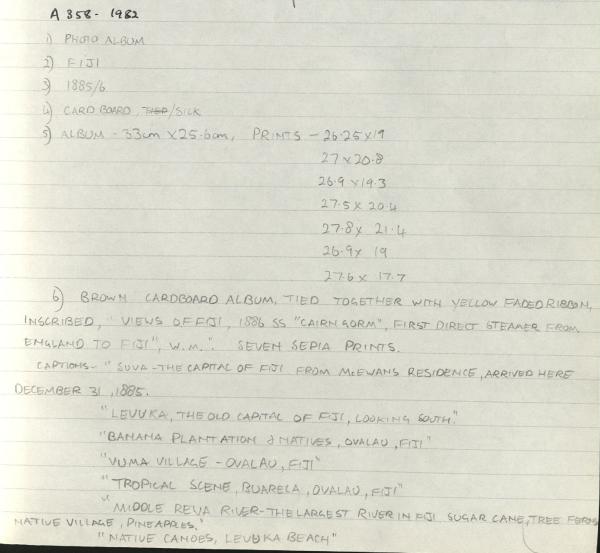 A 358 - 1982
1) PHOTO ALBUM
2) FIJI
3) 1885/6
4) CARD BOARD, TIED/SILK
5) ALBUM - 33cm X 25.6cm, PRINTS - 26.25 X 19
27 X 20.8
26.9 X 19.3
27.5 X 20.4
27.8 X 21.4
26.9 X 19
27.6 X 17.7
6) BROWN CARDBOARD ALBUM, TIED TOGETHER WITH YELLOW FADED RIBBON,
INSCRIBED, "VIEWS OF FIJI, 1886 SS "CAIRNGORM", FIRST DIRECT STEAMER FROM
ENGLAND TO FIJI", W.M.". SEVEN SEPIA PRINTS.
CAPTIONS - "SUVA - THE CAPITAL OF FIJI FROM McEWANS RESIDENCE, ARRIVED HERE
DECEMBER 31, 1885.
"LEVUKA, THE OLD CAPITAL OF FIJI, LOOKING SOUTH."
"BANANA PLANTATION & NATIVES, OVALAU, FIJI"
"VUMA VILLAGE - OVALAU, FIJI"
"TROPICAL SCENE, BUARELA, OVALAU, FIJI"
"MIDDLE REVA RIVER - THE LARGEST RIVER IN FIJI SUGAR CANE, TREE FERNS
NATIVE VILLAGE, PINEAPPLES."
"NATIVE CANOES, LEVUKA BEACH"